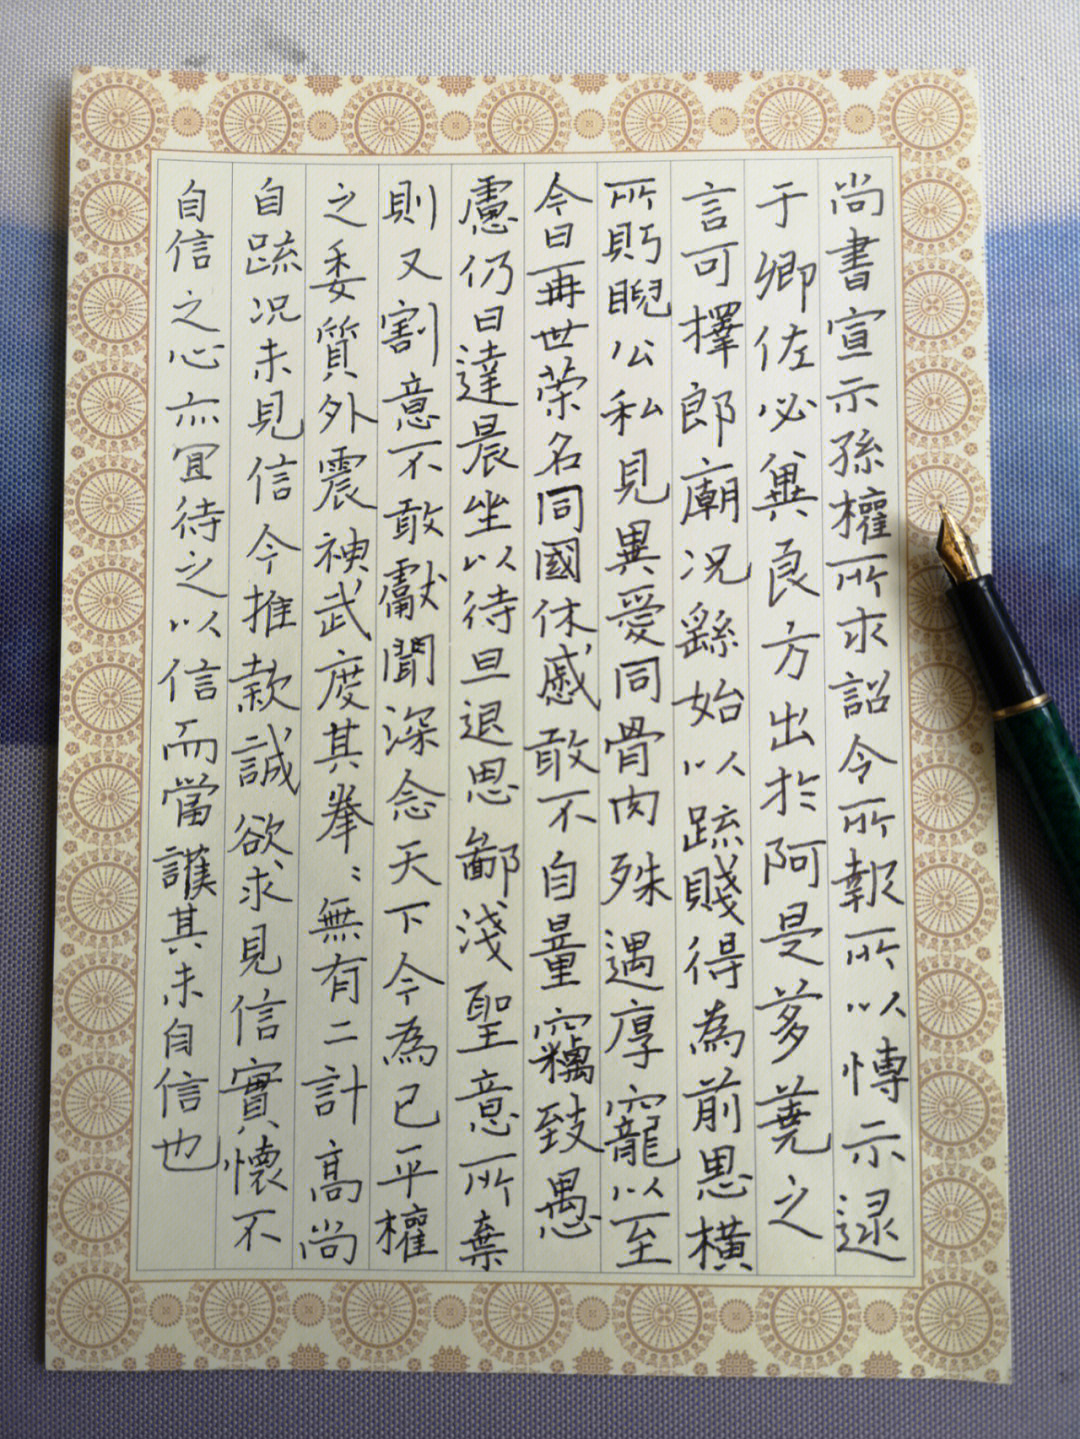 尚書宣示孫權所求詔令所報所以博示逮
于卿佐必冀良方出於阿是芻蕘之
言可擇郎廟况繇始以疏賤得為前恩橫
所盻睨公私見異愛同骨肉殊遇厚寵以至
今日再世荣名同國休慼敢不自量竊致愚
慮仍日達晨坐以待旦退思鄙淺聖意所棄
則又割意不敢獻聞深念天下今為已平權
之委質外震神武度其拳〻無有二計高尚
自疏况未見信今推款誠欲求見信實懷不
自信之心亦宜待之以信而當護其未自信也